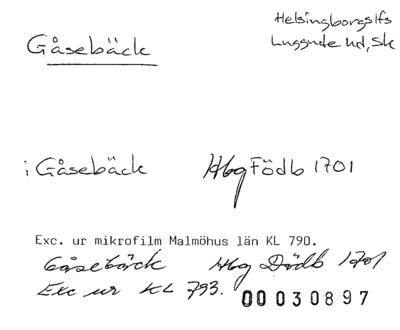 Gåsebäck
Helsingborgs lfs
Luggude hd, Sk
i Gåsebäck Hbg Födb 1701
Exc. ur mikrofilm Malmöhus län KL 790.
Gåsebäck Hbg Dödb 1701
Exc ur KL 793. 00030897